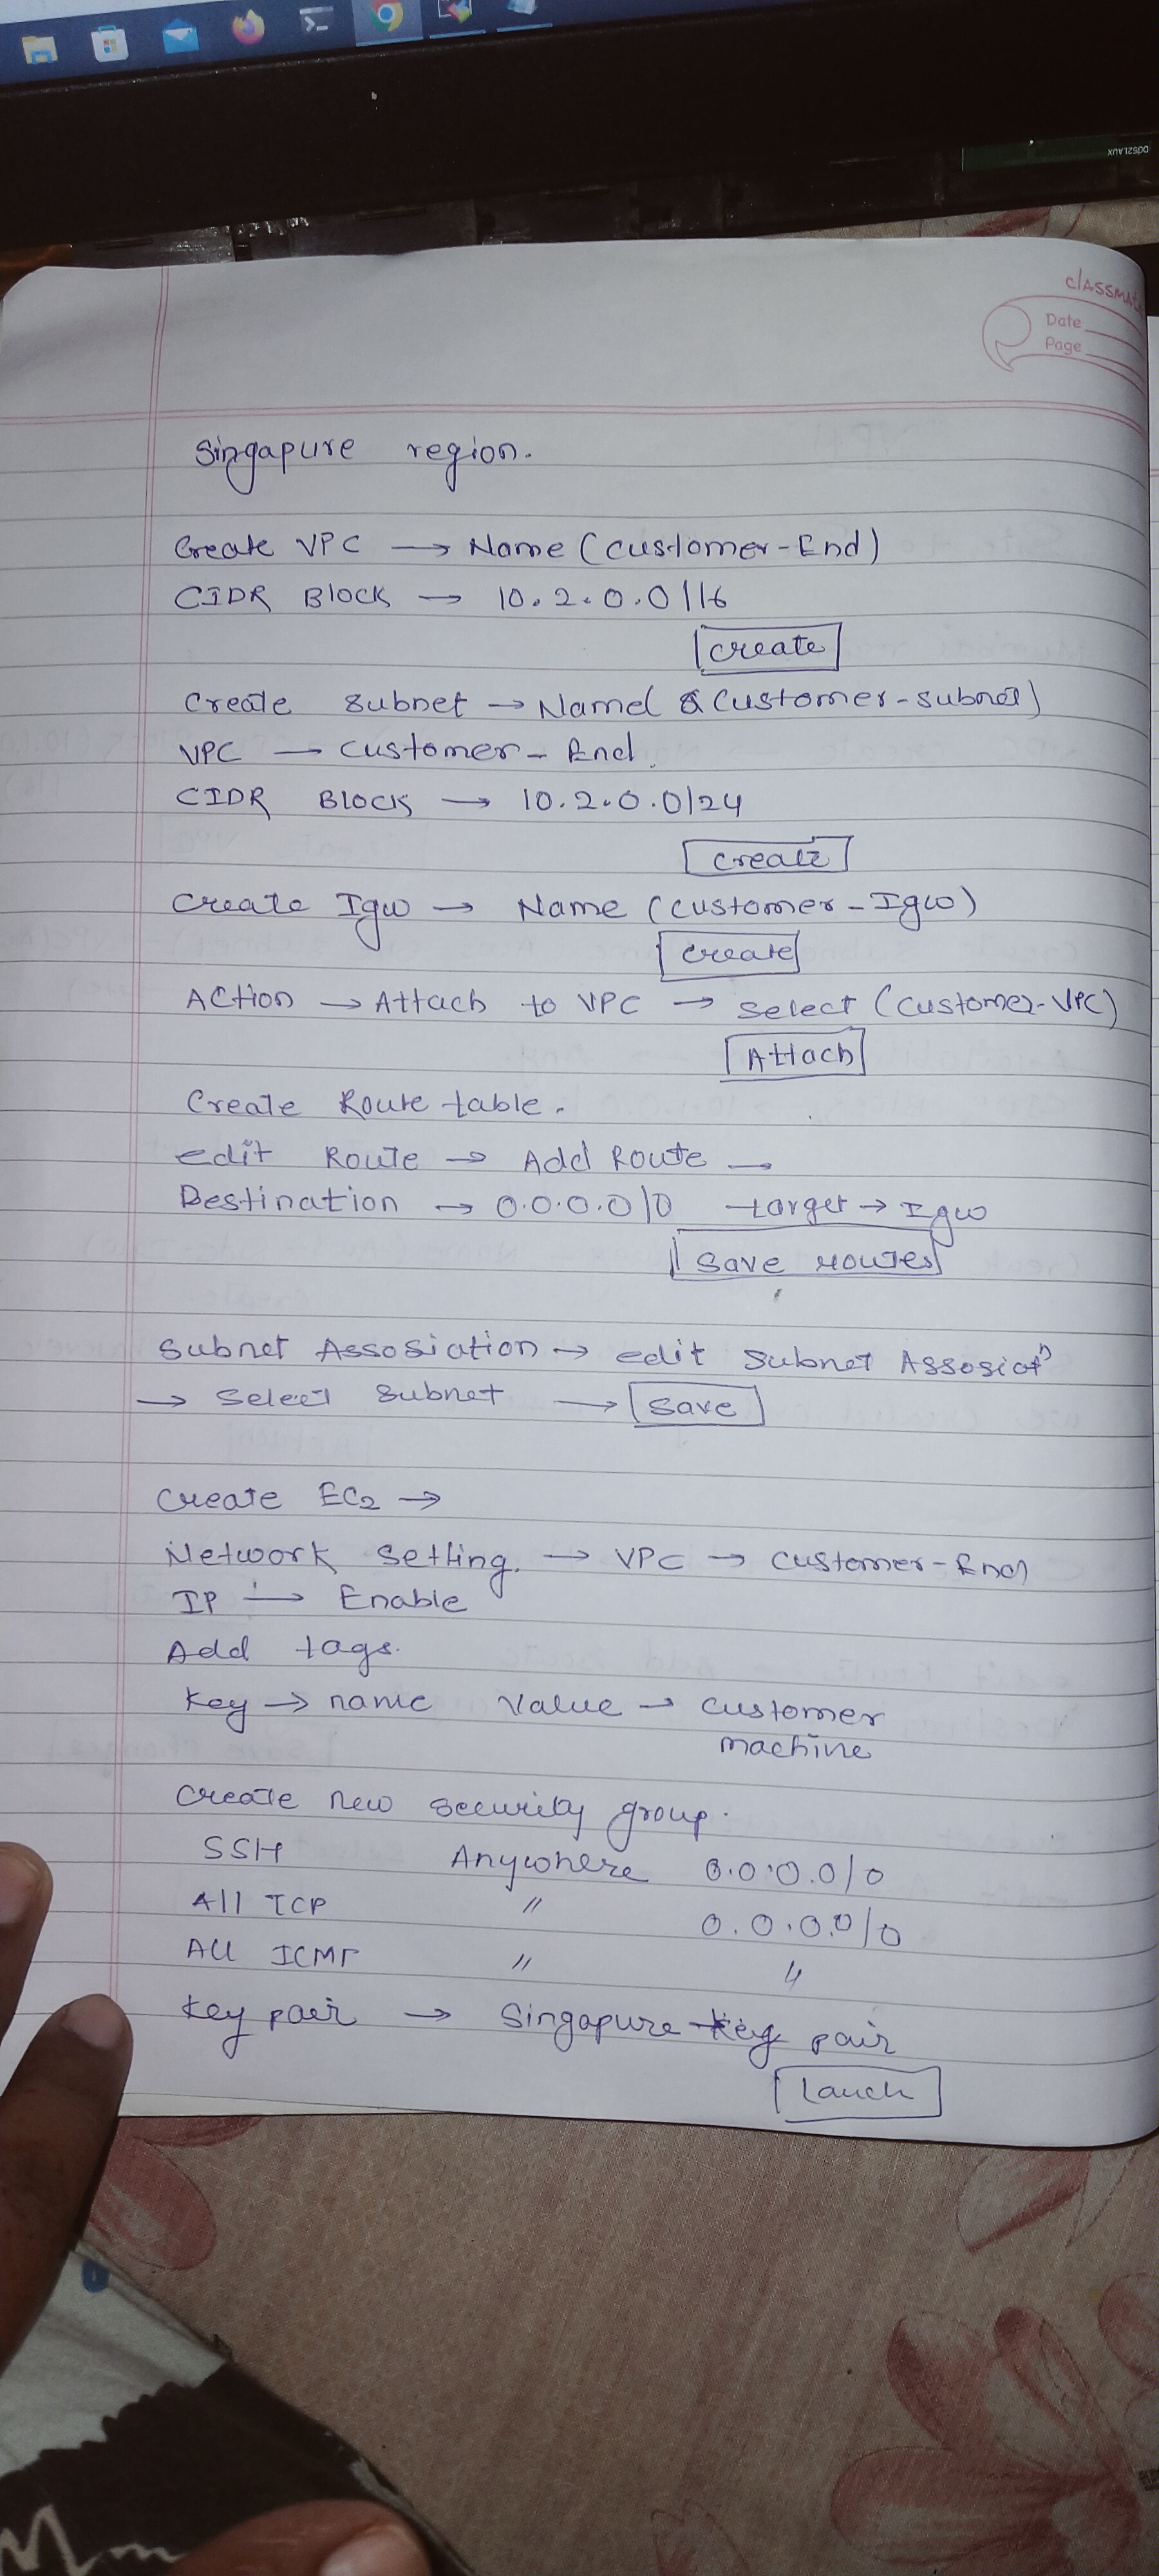 DQS21AUX
classmate
Date
Page
Singapure region.
Create VPC → Name (customer-End)
CIDR Block → 10.2.0.0/16
Create
Create subnet → Name( Customer-subnet)
VPC → customer-End.
CIDR Block → 10.2.0.0/24
Create
Create Igw → Name (customer-Igw)
Create
Action → Attach to VPC → select (customer-VPC)
Attach
Create Route table.
edit Route → Add Route →
Destination → 0.0.0.0/0 target → Igw
Save routes
Subnet Assosiation → edit Subnet Assosiatn
→ Select Subnet → Save
Create EC2 →
Network setting. → VPC → customer-End
IP → Enable
Add tags.
Key → name Value → customer
machine
Create new security group.
SSH Anywhere 0.0.0.0/0
All TCP " 0.0.0.0/0
All ICMP " "
Key pair → Singapure-key pair
Lauch